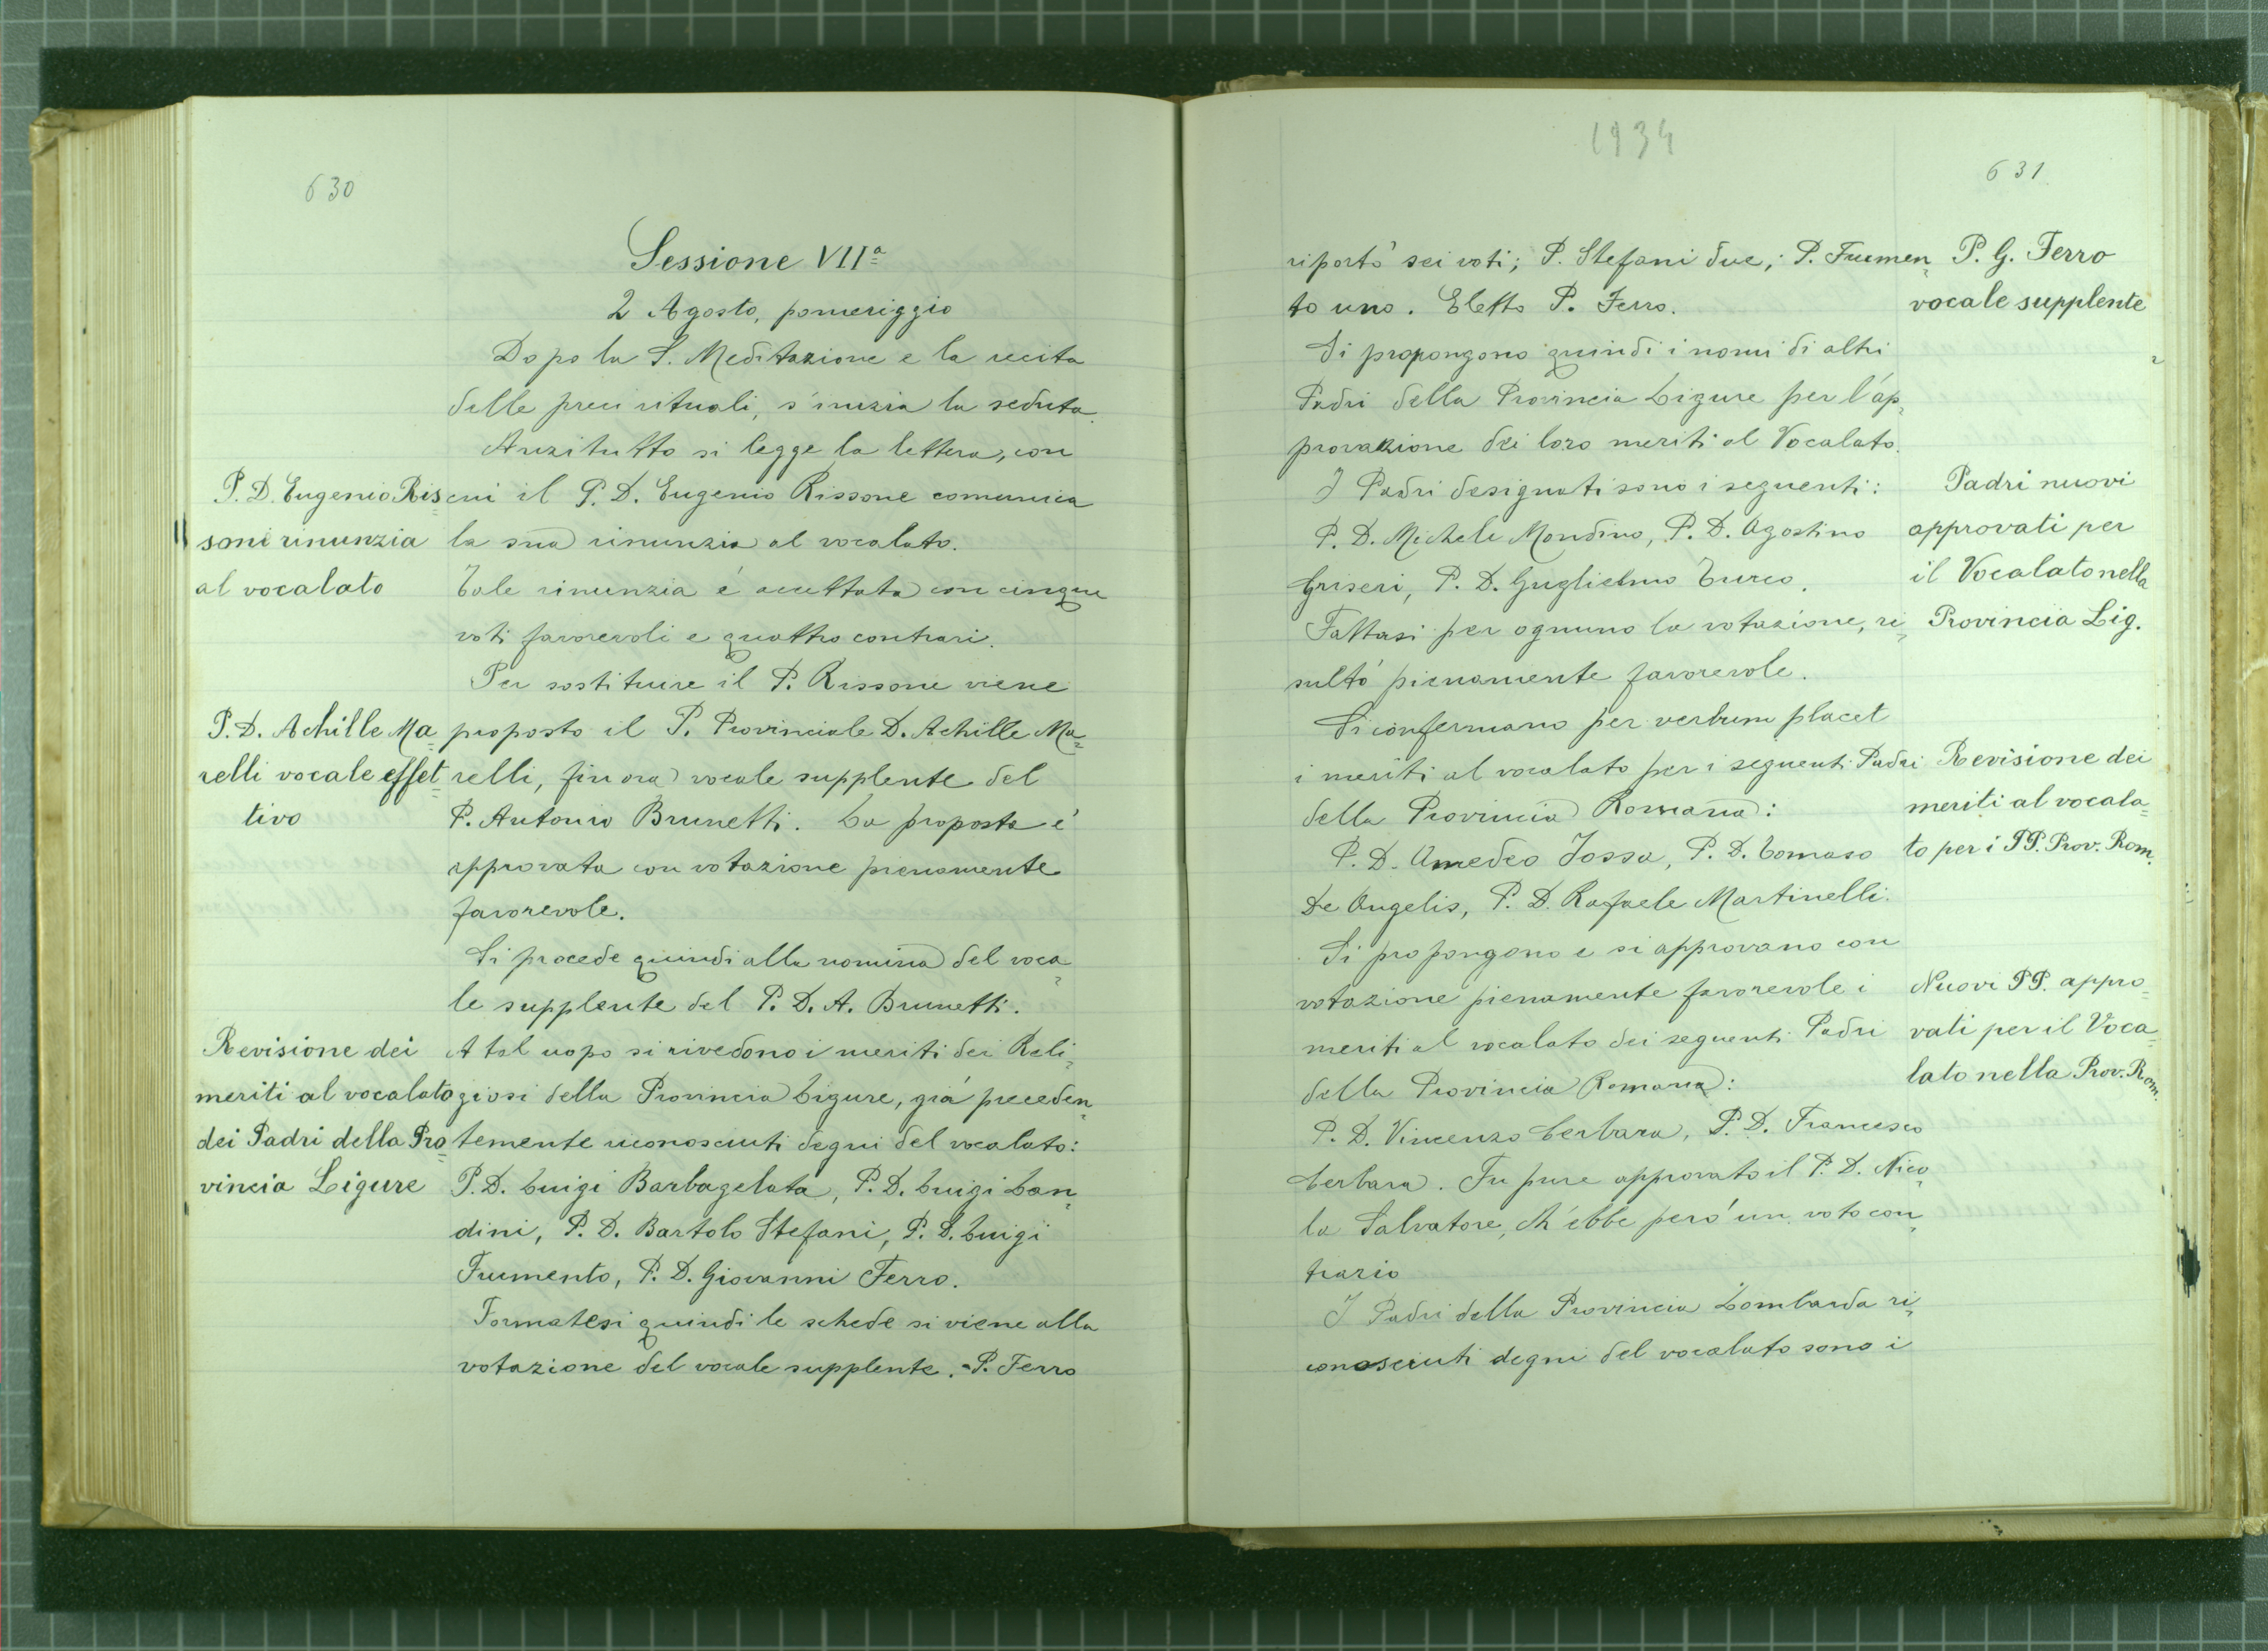 630
Sessione VIIª
2 Agosto, pomeriggio
Dopo la S. Meditazione e la recita
delle preci rituali, s'inizia la seduta.
Anzitutto si legge la lettera, con
cui il P. D. Eugenio Rissone comunica
la sua rinunzia al vocalato.
Tale rinunzia é accettata con cinque
voti favorevoli e quattro contrari.
Per sostituire il P. Rissone viene
proposto il P. Provinciale D. Achille Ma=
relli, fin ora vocale supplente del
P. Antonio Brunetti. La proposta é
approvata con votazione pienamente
favorevole.
Si procede quindi alla nomina del voca=
le supplente del P. D. A. Brunetti.
A tal uopo si rivedono i meriti dei Reli=
giosi della Provincia Ligure, giá preceden=
temente riconosciuti degni del vocalato:
P. D. Luigi Barbagelata, P. D. Luigi Lan=
dini, P. D. Bartolo Stefani, P. D. Luigi
Frumento, P. D. Giovanni Ferro.
Formatesi quindi le schede si viene alla
votazione del vocale supplente. - P. Ferro
P. D. Eugenio Ris=
soni rinunzia
al vocalato
P. D. Achille Ma=
relli vocale effet=
tivo
Revisione dei
meriti al vocalato
dei Padri della Pro=
vincia Ligure
1934
631
riportò sei voti; P. Stefani due; P. Frumen=
to uno. Eletto P. Ferro.
Si propongono quindi i nomi di altri
Padri della Provincia Ligure per l'ap=
provazione dei loro meriti al Vocalato.
I Padri designati sono i seguenti:
P. D. Michele Mondino, P. D. Agostino
Griseri, P. D. Guglielmo Turco.
Fattasi per ognuno la votazione, ri=
sultó pienamente favorevole.
Si confermano per verbum placet
i meriti al vocalato per i seguenti Padri
della Provincia Romana:
P. D. Amedeo Jossa, P. D. Tomaso
De Angelis, P. D. Rafaele Martinelli.
Si propongono e si approvano con
votazione pienamente favorevole i
meriti al vocalato dei seguenti Padri
della Provincia Romana:
P. D. Vincenzo Cerbara, P. D. Francesco
Cerbara. Fu pure approvato il P. D. Nico=
la Salvatore, ch'ebbe peró un voto con=
trario
I Padri della Provincia Lombarda ri=
conosciuti degni del vocalato sono i
P. G. Ferro
vocale supplente
Padri nuovi
approvati per
il Vocalato nella
Provincia Lig.
Revisione dei
meriti al vocala=
to per i PP. Prov. Rom.
Nuovi PP. appro=
vati per il Voca=
lato nella Prov. Rom.